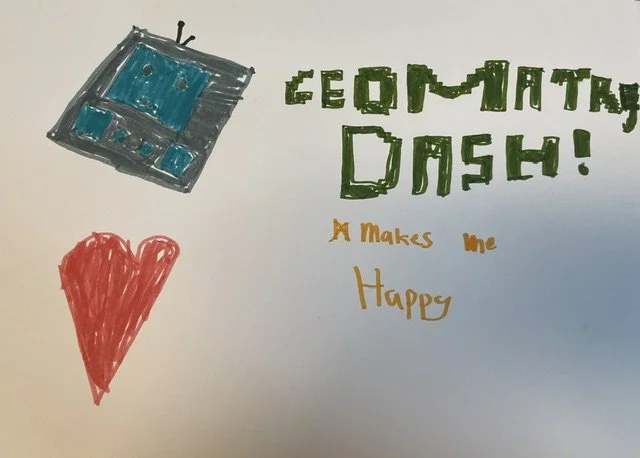 GEOMATRY
DASH!
makes me
Happy